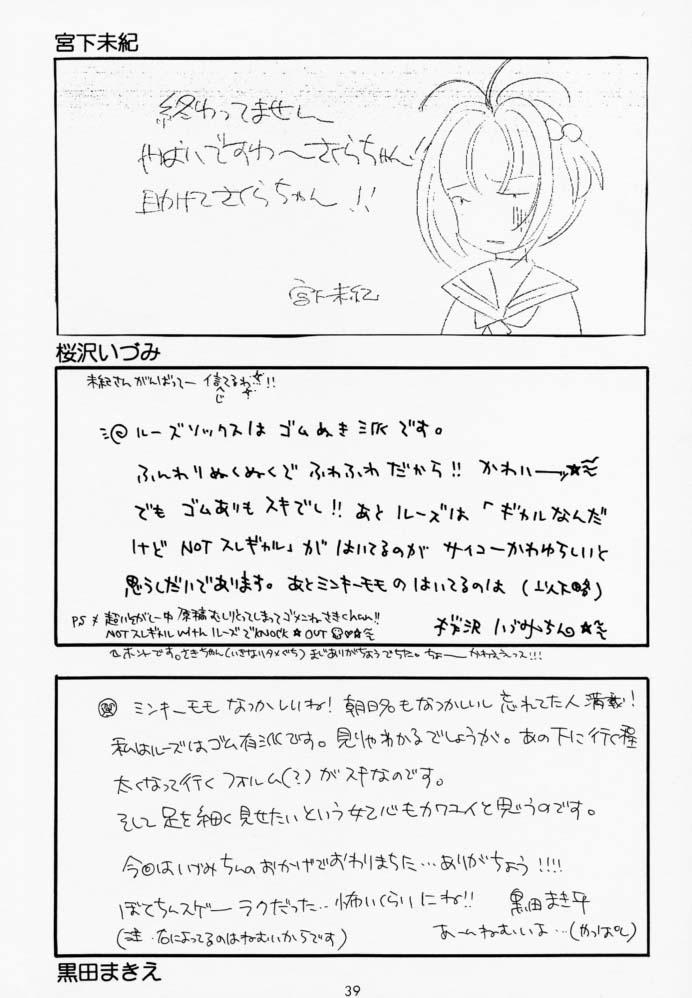 宮下未紀
終わってません
やばいですわ〜さくらちゃん!!
助けてさくらちゃん!!
宮下未紀
桜沢いづみ
未紀さんがんばってー 信じてるわ!!
ルーズソックスは ゴムぬき派です。
ふんわりぬくぬくで ふわふわだから!! かわいーッ☆
でも ゴムありも スキでし!! あと ルーズは 「ギャルなんだ
けど NOT スレギャル」が はいてるのが サイコーかわゆらしいと
思うしだいであります。あとミンキーモモのはいてるのは (以下略)
PS 超いそがしー中 原稿むしりとってしまってゴメンねさきchan!!
NOTスレギャル with ルーズでKNOCK☆OUT
桜沢 いづみちん☆
ホントです。さきちゃん(いきなりタメぐち)まじありがちょうでちた。ちょーーかわええっス!!!
ミンキーモモ なつかしいね! 朝日名もなつかしいし 忘れてた人 満載!
私はルーズはゴム有派です。見りゃわかるでしょうが。あの下に行く程
太くなって行く フォルム(?)が スキなのです。
そして 足を細く見せたいという女心も カワユイと思うのです。
今回はいづみちんのおかげでおわりまちた…ありがちょう!!!!
ぼてちんスゲーラクだった…怖いくらいにね!! 黒田まき平
(注・右によってるのはねむいからです) あームねむいよ…(やっぱり)
黒田まきえ
39